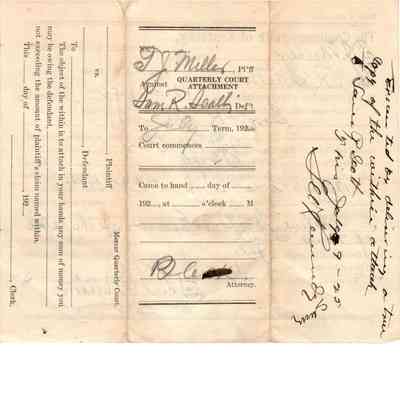 No.
T J Miller Pl'ff
Against
QUARTERLY COURT
ATTACHMENT
Sam R. Def't
To July Term, 192
Court commences
Came to hand day of
192 , at o'clock M
Attorney
Plaintiff
vs.
Defendant
Mercer Quarterly Court.
To
The object of the within is to attach in your hands any sum of money you
may be owing the defendant,
not exceeding the amount of plaintiff's claim named within.
This day of 192
, Clerk.
Executed by delivering a true
copy of the within attach
to Sam R
This July 9-25
Kennedy